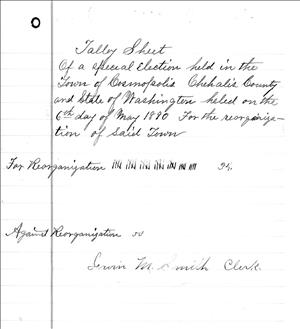 Talley Sheet
Of a special Election held in the
Town of Cosmopolis Chehalis County
and State of Washington heled on the
6th day of May 1890 For the reorginiza-
tion of said Town
For Reorganization
34.
Against Reorganization
Irwin M. Smith Clerk.